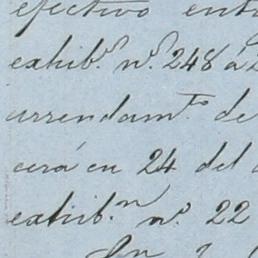 efectivo ent
exhib.n n.o 248 á
arrendam.to de
cerá en 24 del
exhib.n n.o 22